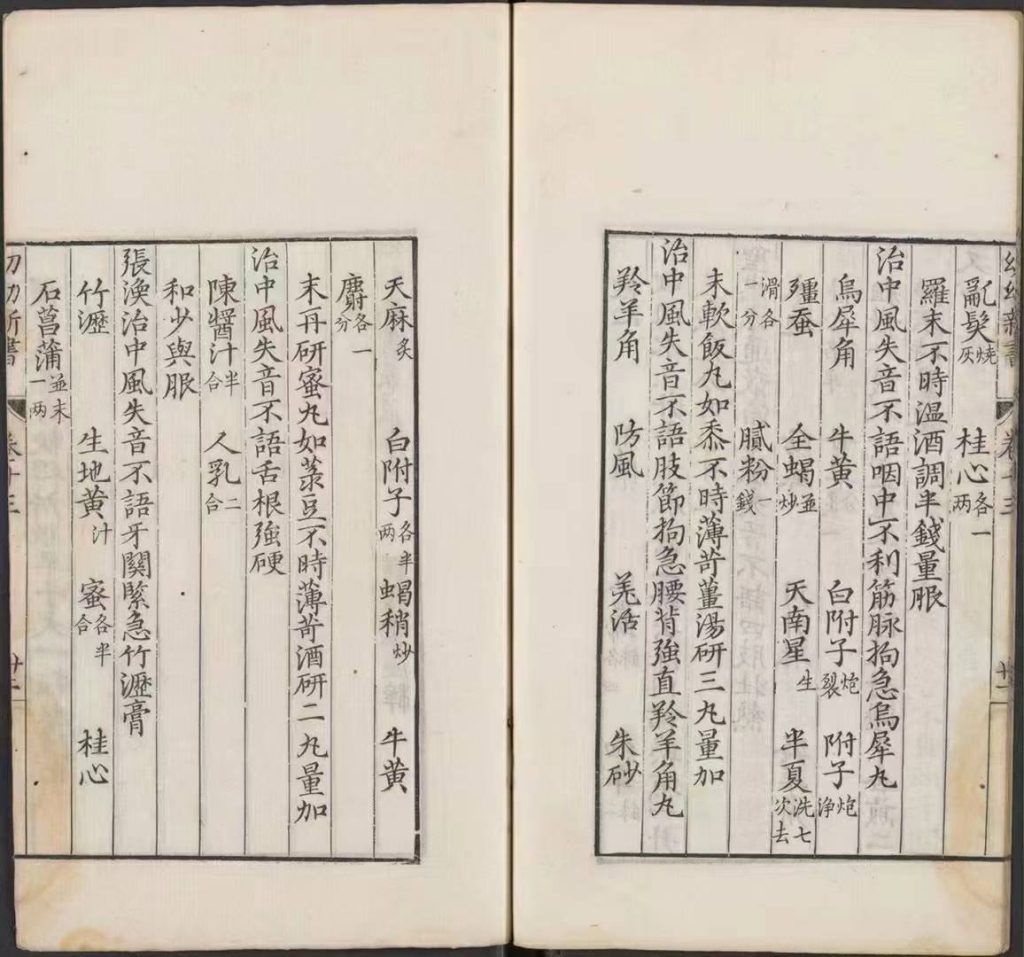 幼幼新書 卷十三 十一
亂髮燒灰 桂心各一两
羅末不時温酒調半錢量服
治中風失音不語咽中不利筋脉拘急烏犀丸
烏犀角 牛黄 白附子炮裂 附子炮淨
殭蚕 全蝎並炒 天南星生 半夏洗七次去
滑各一分 膩粉一錢
末軟飯丸如黍不時薄荷薑湯研三丸量加
治中風失音不語肢節拘急腰背強直羚羊角丸
羚羊角 防風 羌活 朱砂
天麻炙 白附子各半两 蝎稍炒 牛黄
麝各一分
末再研蜜丸如菉豆不時薄荷酒研二丸量加
治中風失音不語舌根強硬
陳醤汁半合 人乳二合
和少與服
張渙治中風失音不語牙關緊急竹瀝膏
竹瀝 生地黄汁 蜜各半合 桂心
石菖蒲並末一两
幼幼新書 卷十三